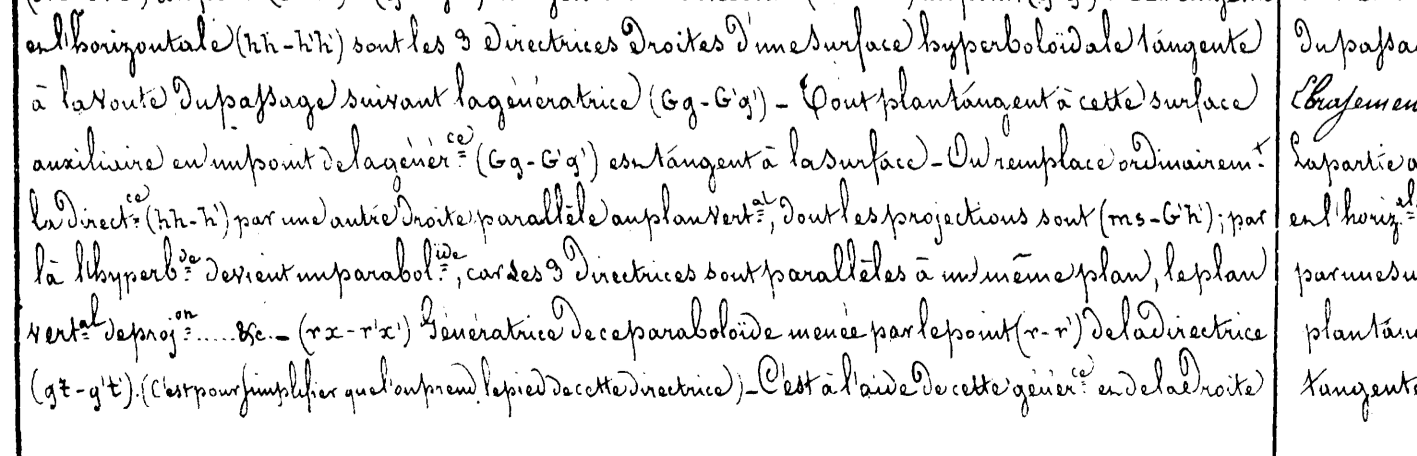 et l'horizontale (hh-h'h') sont les 3 Directrices Droites d'une surface hyperboloïdale tángente
à la voute du passage suivant la génératrice (Gg-G'g') - Tout plan tángent à cette surface
auxiliaire en un point de la génér.ce (Gg-G'g') est tángent à la surface - On remplace ordinairem.t
la direct.ce (hh-h') par une autre droite parallèle au plan vert.al, dont les projections sont (ms-G'h'); par
là l'hyperb.de devient un parabol.ide, car les 3 Directrices sont parallèles à un même plan, le plan
vert.al de proj.on ..... &c. - (rx-r'x') Génératrice de ce paraboloïde menée par le point (r-r') de la directrice
(gt-g't'). (C'est pour simplifier que l'on prend le pied de cette directrice) - C'est à l'aide de cette génér.ce et de la droite
du passa
Ebrasemen
La partie a
en l'horiz.el
par une su
plan tán
tangente